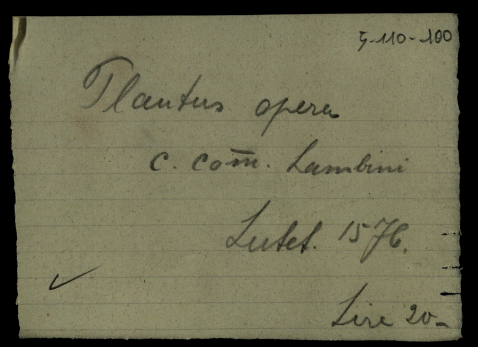 5-110-100
Plautus opera
c. com̅. Lambini
Lutet. 1576.
Lire 20-